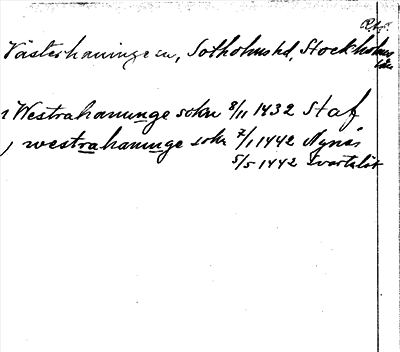 Västerhaninge sn, Sotholms hd, Stockholms
län
i Westrahanunge sokn 8/11 1432 Staf
j westrahanunge sokn 7/1 1442 Nynäs
5/5 1442